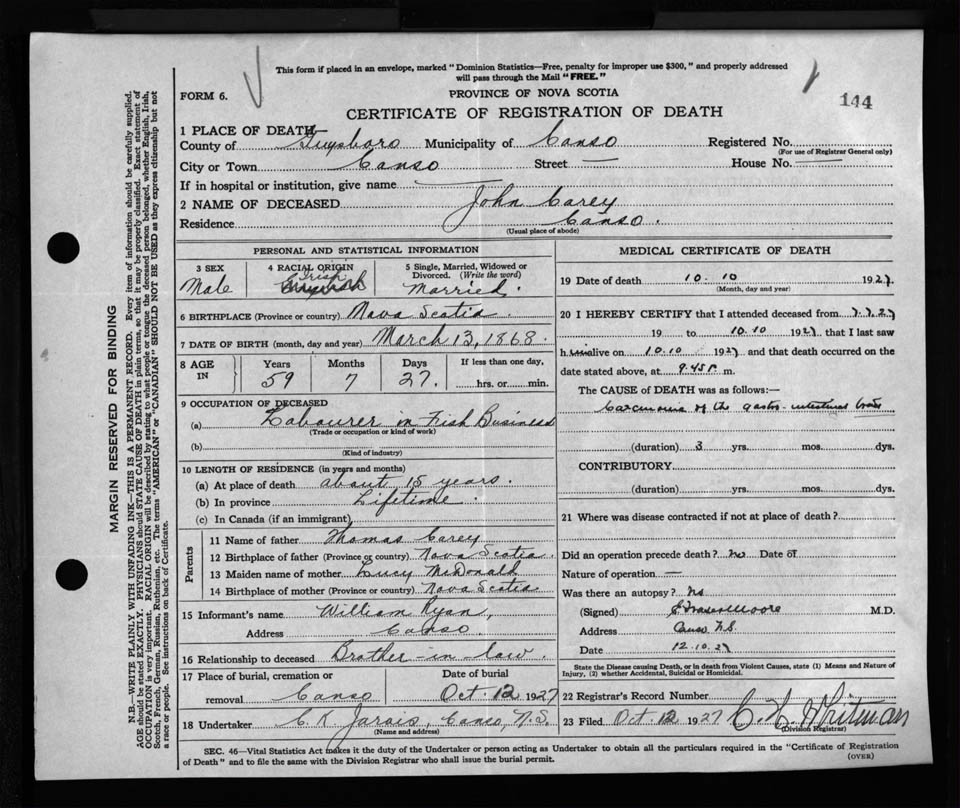 This form if placed in an envelope, marked "Dominion Statistics—Free, penalty for improper use $300," and properly addressed
will pass through the Mail "FREE."
FORM 6.
PROVINCE OF NOVA SCOTIA
144
CERTIFICATE OF REGISTRATION OF DEATH
1 PLACE OF DEATH—
County of Guysboro Municipality of Canso Registered No.
(For use of Registrar General only)
City or Town Canso Street — House No. —
If in hospital or institution, give name —
2 NAME OF DECEASED John Carey
Residence Canso.
(Usual place of abode)
PERSONAL AND STATISTICAL INFORMATION
3 SEX 4 RACIAL ORIGIN 5 Single, Married, Widowed or
Divorced. (Write the word)
Male Irish Married.
6 BIRTHPLACE (Province or country) Nova Scotia
7 DATE OF BIRTH (month, day and year) March 13, 1868.
8 AGE IN Years Months Days If less than one day,
59 7 27. hrs. or min.
9 OCCUPATION OF DECEASED
(a) Labourer in Fish Business
(Trade or occupation or kind of work)
(b)
(Kind of industry)
10 LENGTH OF RESIDENCE (in years and months)
(a) At place of death about 15 years.
(b) In province Lifetime.
(c) In Canada (if an immigrant)
Parents
11 Name of father Thomas Carey
12 Birthplace of father (Province or country) Nova Scotia.
13 Maiden name of mother Lucy McDonald
14 Birthplace of mother (Province or country) Nova Scotia
15 Informant's name William Ryan,
Address Canso.
16 Relationship to deceased Brother-in law.
17 Place of burial, cremation or Date of burial
removal Canso Oct. 12 1927
18 Undertaker C. K. Canso, N.S.
(Name and address)
MEDICAL CERTIFICATE OF DEATH
19 Date of death 10. 10 1927.
(Month, day and year)
20 I HEREBY CERTIFY that I attended deceased from
19 to 10.10 1927, that I last saw
h im alive on 10.10 1927 and that death occurred on the
date stated above, at 9.45 P. m.
The CAUSE OF DEATH was as follows:—
Carcinoma of the gastro-intestinal tract
(duration) 3 yrs. mos. dys.
CONTRIBUTORY
(duration) yrs. mos. dys.
21 Where was disease contracted if not at place of death?
Did an operation precede death? no Date of
Nature of operation —
Was there an autopsy? no
(Signed) Moore M.D.
Address Canso N.S.
Date 12.10.27
State the Disease causing Death, or in death from Violent Causes, state (1) Means and Nature of
Injury, (2) whether Accidental, Suicidal or Homicidal.
22 Registrar's Record Number
23 Filed Oct 12 1927 C. H. Whitman
(Division Registrar)
SEC. 46—Vital Statistics Act makes it the duty of the Undertaker or person acting as Undertaker to obtain all the particulars required in the "Certificate of Registration
of Death" and to file the same with the Division Registrar who shall issue the burial permit.
(OVER)
MARGIN RESERVED FOR BINDING
N.B.—WRITE PLAINLY WITH UNFADING INK—THIS IS A PERMANENT RECORD. Every item of information should be carefully supplied.
AGE should be stated EXACTLY. PHYSICIANS should STATE CAUSE OF DEATH in plain terms, so that it may be properly classified. Exact statement of
OCCUPATION is very important. RACIAL ORIGIN will be described by stating to what people or tongue the deceased person belonged, whether English, Irish,
Scotch, French, German, Russian, Ruthenian, etc. The terms "AMERICAN" or "CANADIAN" SHOULD NOT BE USED as they express citizenship but not
a race or people. See instructions on back of Certificate.